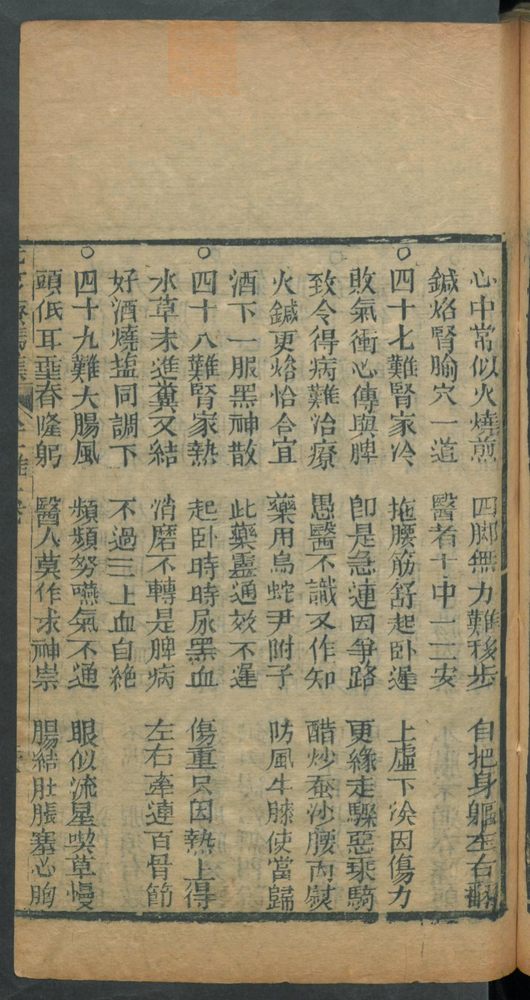 心中常似火燒煎 四脚無力難移步 自把身軀左右翻
鍼烙腎腧穴一道 醫者十中一二安
○四十七難腎家冷 拖腰筋舒起卧遲 上虛下冷因傷力
敗氣衝心傳與脾 卽是急連因爭路 更緣走驟惡乘騎
致令得病難治療 愚醫不識又作知 醋炒蚕沙腰內熨
火鍼更烙恰合宜 藥用烏蛇尹附子 防風牛膝使當歸
酒下一服黑神散 此藥靈通效不遲
○四十八難腎家熱 起卧時時尿黑血 傷重只因熱上得
水草未進糞又結 消磨不轉是脾病 左右牽連百骨節
好酒燒塩同調下 不過三上血自絶
○四十九難大腸風 頻頻努嚥氣不通 眼似流星喫草慢
頭低耳垂脊隆躬 醫人莫作求神祟 腸結肚脹塞心胸